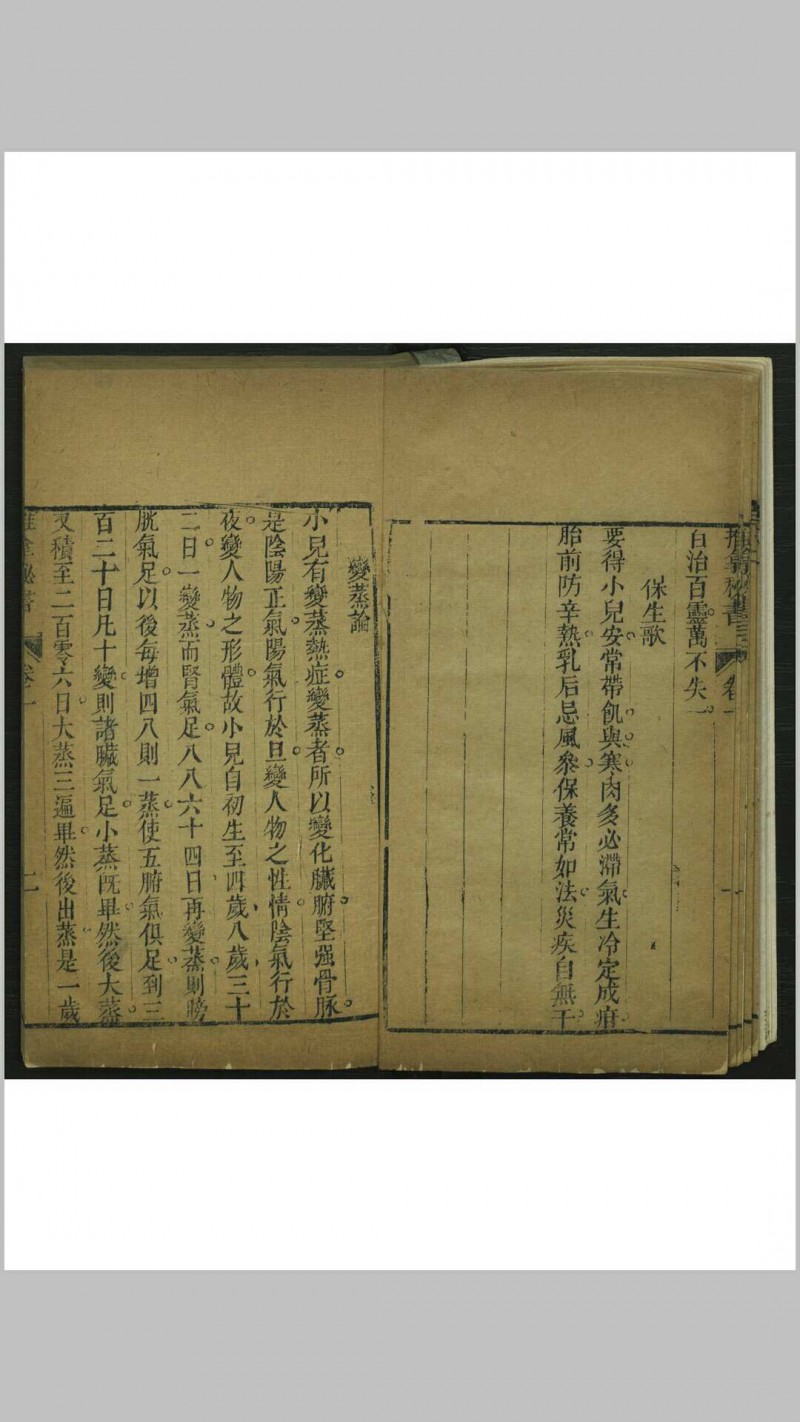 推拿秘書 卷一
自治百靈萬不失一
保生歌
要得小兒安常帶飢與寒肉多必滯氣生冷定成疳
胎前防辛熱乳后忌風參保養常如法災疾自無干
變蒸論
小兒有變蒸熱症變蒸者所以變化臟腑堅强骨脉
是陰陽正氣陽氣行於旦變人物之性情陰氣行於
夜變人物之形體故小兒自初生至四歲八歲三十
二日一變蒸而腎氣足八八六十四日再變蒸則膀
胱氣足以後每增四八則一蒸使五腑氣俱足到三
百二十日凡十變則諸臟氣足小蒸既畢然後大蒸
又積至二百零六日大蒸三遍畢然後出蒸是一歲
推拿秘書 卷一 二